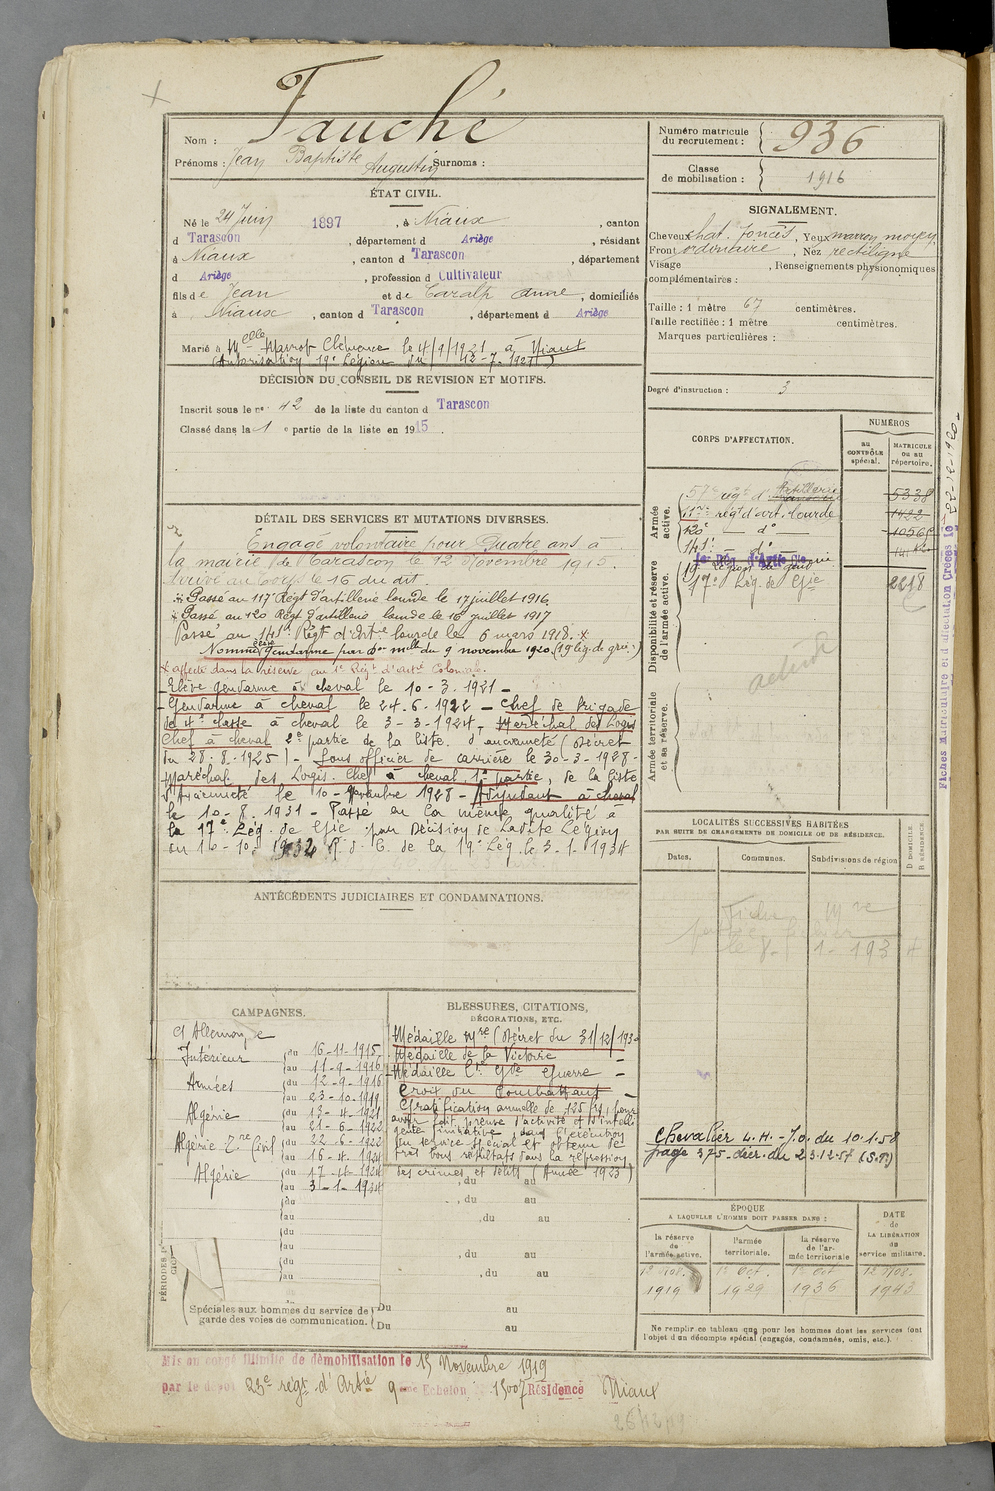 Fauché
Nom :
Prénoms : Jean Baptiste Augustin Surnoms :
Numéro matricule du recrutement : 936
Classe de mobilisation : 1916
ÉTAT CIVIL.
Né le 24 Juin 1897, à Niaux, canton
d Tarascon, département d Ariège, résidant
à Niaux, canton d Tarascon, département
d Ariège, profession d Cultivateur
fils de Jean et de Caralp Anne, domiciliés
à Niaux, canton d Tarascon, département d Ariège
Marié à Melle Marrot Clémence le 4/9/1921 à Niaux
(Autorisation 19e Légion du 12-7-1921)
SIGNALEMENT.
Cheveux chat. foncés, Yeux marron moyen
Front ordinaire, Nez rectiligne
Visage , Renseignements physionomiques
complémentaires :
Taille : 1 mètre 67 centimètres.
Taille rectifiée : 1 mètre centimètres.
Marques particulières :
Degré d'instruction : 3
DÉCISION DU CONSEIL DE REVISION ET MOTIFS.
Inscrit sous le no 42 de la liste du canton d Tarascon
Classé dans la 1e partie de la liste en 1915.
CORPS D'AFFECTATION.
NUMÉROS
au CONTRÔLE spécial.
MATRICULE ou au répertoire.
Armée active.
57e régt d'artillerie 5338
117e régt d'art. lourde 1422
120e do 10565
141e do
Disponibilité et réserve de l'armée active.
19e Légion de gend
17e Lég. de Gie 2218
active
Armée territoriale et sa réserve.
Fiches Matriculaire et d'affectation Créées le 22-12-1920-
DÉTAIL DES SERVICES ET MUTATIONS DIVERSES.
Engagé volontaire pour Quatre ans à
la mairie de Tarascon le 12 Novembre 1915.
Arrivé au Corps le 16 du dit.
Passé au 117e Régt d'artillerie lourde le 17 juillet 1916
Passé au 120 Régt d'artillerie lourde le 16 juillet 1917
Passé au 141e Régt d'Artie lourde le 6 mars 1918. x
Nommé élève Gendarme par don mlle du 9 novembre 1920 (19e lég. de grie)
x affecté dans la réserve au 1e Régt d'artie Coloniale.
- Elève gendarme à cheval le 10-3-1921 -
- Gendarme à cheval le 24-6-1922 - Chef de brigade
de 4e classe à cheval le 3-3-1924 - Maréchal des Logis
Chef à cheval 2e partie de la liste d'ancienneté (Décret
du 28-8-1925) - Sous officier de carrière le 30-3-1928 -
Maréchal des Logis Chef à cheval, 1e partie, de la liste
d'Ancienneté le 10-Novembre 1928 - Adjudant à cheval
le 10-8-1931 - Passé en la même qualité à
la 17e Lég. de Gie par Décision de Ladite Légion
du 16-10-1932 R. d. C. de la 19e Lég. le 3-1-1934
ANTÉCÉDENTS JUDICIAIRES ET CONDAMNATIONS.
LOCALITÉS SUCCESSIVES HABITÉES
PAR SUITE DE CHANGEMENTS DE DOMICILE OU DE RÉSIDENCE.
Dates.
Communes.
Subdivisions de région
D DOMICILE. R RÉSIDENCE.
le 8-1-1934
Chevalier L.H. - J.O. du 10.1.58
page 375 - décr. du 23.12.57 (S.P.)
CAMPAGNES.
Ct Allemagne
Intérieur du 16-11-1915
au 11-9-1916
Armées du 12-9-1916
au 23-10-1919
Algérie du 13-4-1921
au 21-6-1922
Algérie T.re Civil du 22-6-1922
au 16-4-1924
Algérie du 17-4-1924
au 3-1-1934
du
au
du
au
du
au
Spéciales aux hommes du service de garde des voies de communication.
Du au
Du au
BLESSURES, CITATIONS,
DÉCORATIONS, ETC.
Médaille Mre (Décret du 31/12/193
Médaille de la Victoire -
Médaille Cve Gde Guerre -
Croix du Combattant -
Gratification annuelle de 125 frs, pour
avoir fait preuve d'activité et d'intelli
gente initiative dans l'exécution
du service spécial et obtenu de
très bons résultats dans la répression
des crimes et délits (Année 1923)
, du au
, du au
, du au
, du au
, du au
ÉPOQUE
A LAQUELLE L'HOMME DOIT PASSER DANS :
la réserve de l'armée active.
l'armée territoriale.
la réserve de l'armée territoriale
DATE de LA LIBÉRATION du service militaire.
12 Nov. 1919
1e Oct. 1929
1e Oct 1936
12 Nov. 1943
Ne remplir ce tableau que pour les hommes dont les services font
l'objet d'un décompte spécial (engagés, condamnés, omis, etc.).
Mis en congé illimité de démobilisation le 15 Novembre 1919
par le dépôt 23e régt d'Artie 9eme Echelon 15007 Résidence Niaux
26/12/19